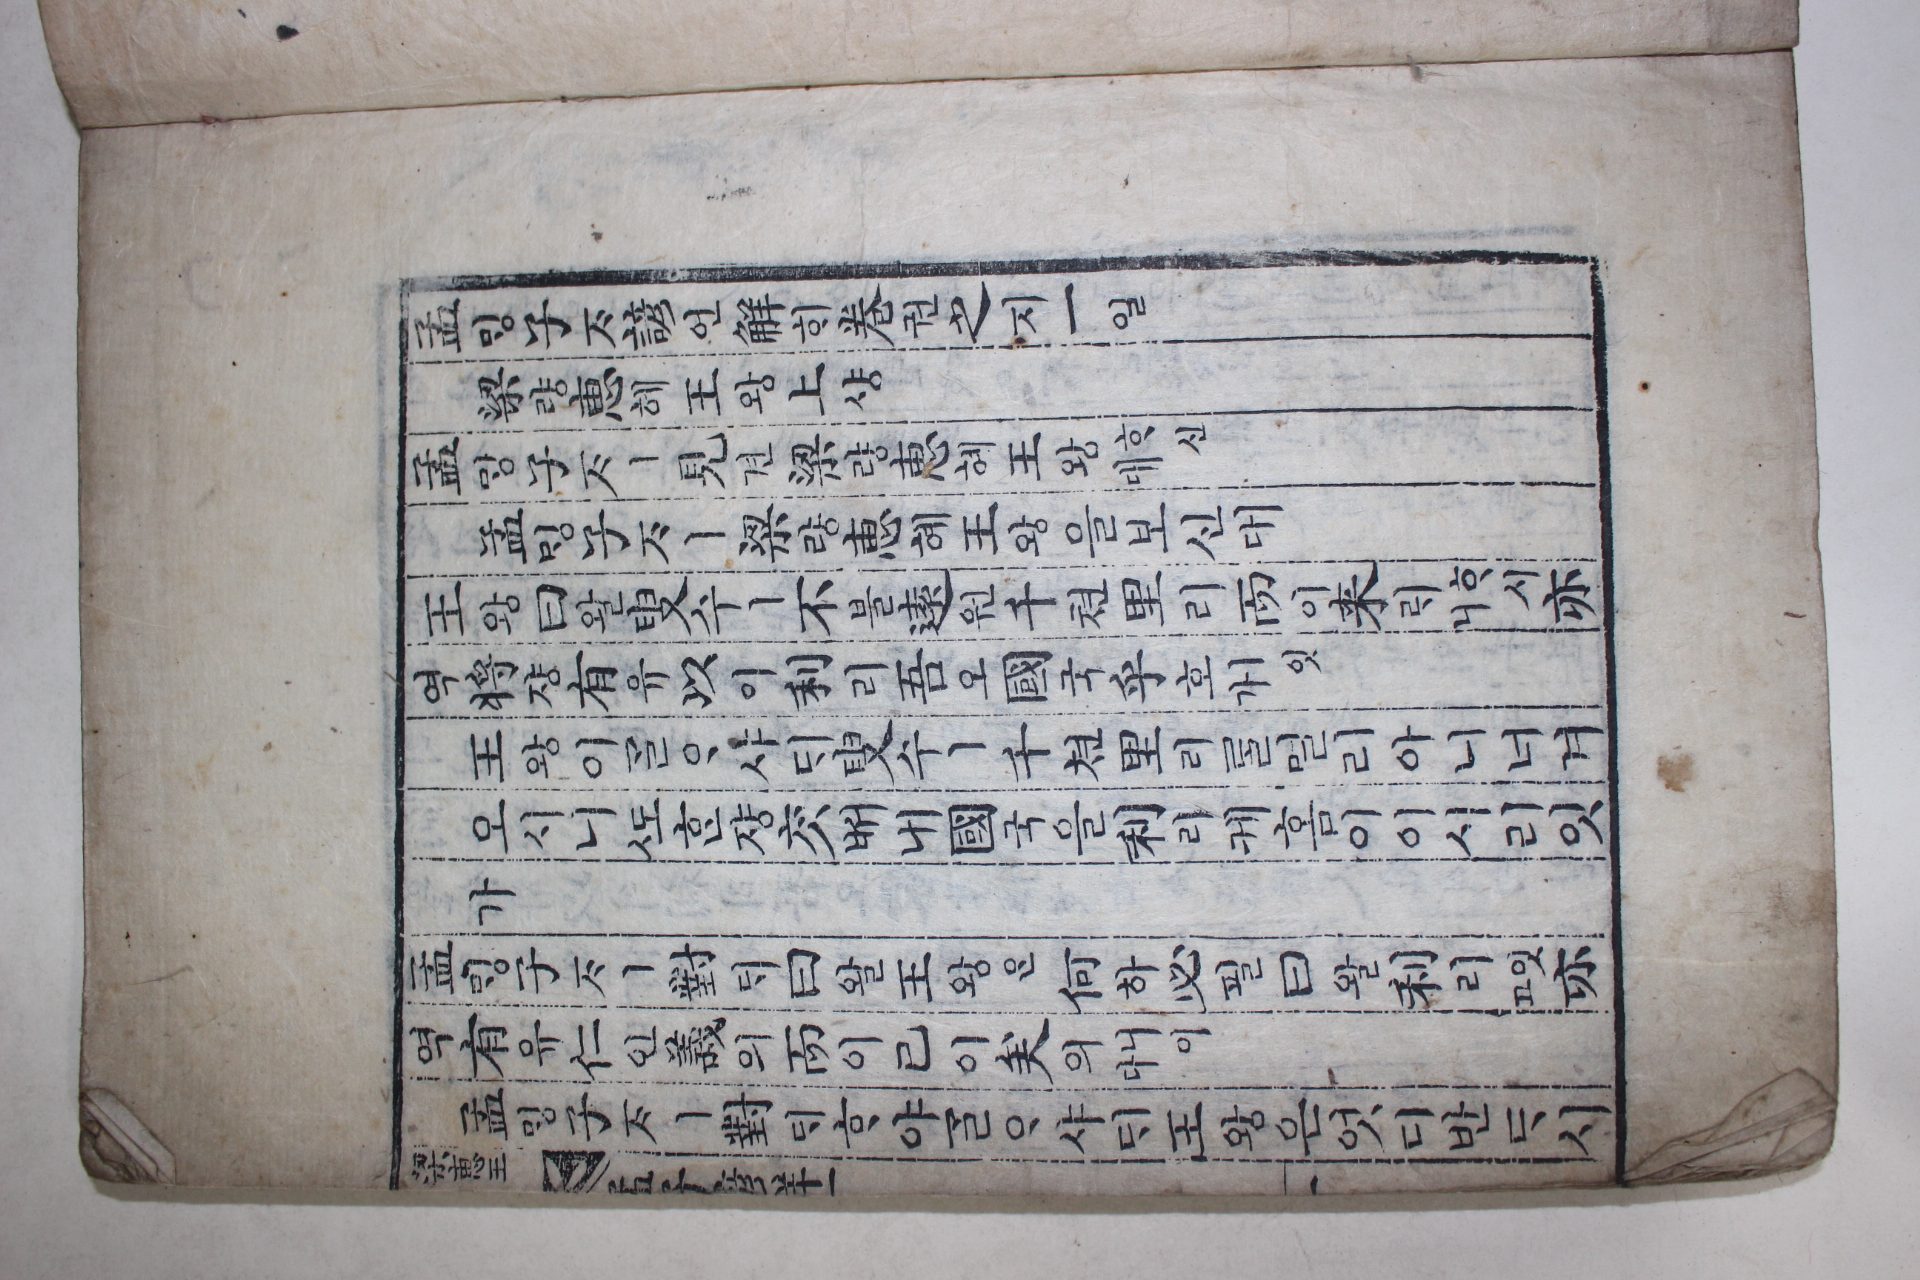 孟ᄆᆡᆼ子ᄌᆞ諺언解ᄒᆡ卷권之지一일
梁량惠혜王왕上샹
孟ᄆᆡᆼ子ᄌᆞㅣ見견梁량惠혜王왕ᄒᆞ신대
孟ᄆᆡᆼ子ᄌᆞㅣ梁량惠혜王왕을보신대
王왕曰왈叟수ㅣ不불遠원千쳔里리而이来ᄅᆡᄒᆞ시니亦
역將쟝有유以이利리吾오國국乎호잇가
王왕이ᄀᆞᆯᄋᆞ샤ᄃᆡ叟수ㅣ千쳔里리ᄅᆞᆯ멀리아니너겨
오시니ᄯᅩᄒᆞᆫ쟝ᄎᆞᆺᄡᅥ내國국을利리케홈이이시리잇
가
孟ᄆᆡᆼ子ᄌᆞㅣ對ᄃᆡ曰왈王왕은何하必필曰왈利리잇고亦
역有유仁인義의而이已이矣의니이다
孟ᄆᆡᆼ子ᄌᆞㅣ對ᄃᆡᄒᆞ야ᄀᆞᆯᄋᆞ샤ᄃᆡ王왕은엇디반ᄃᆞ시
梁惠王
孟子諺解一
一